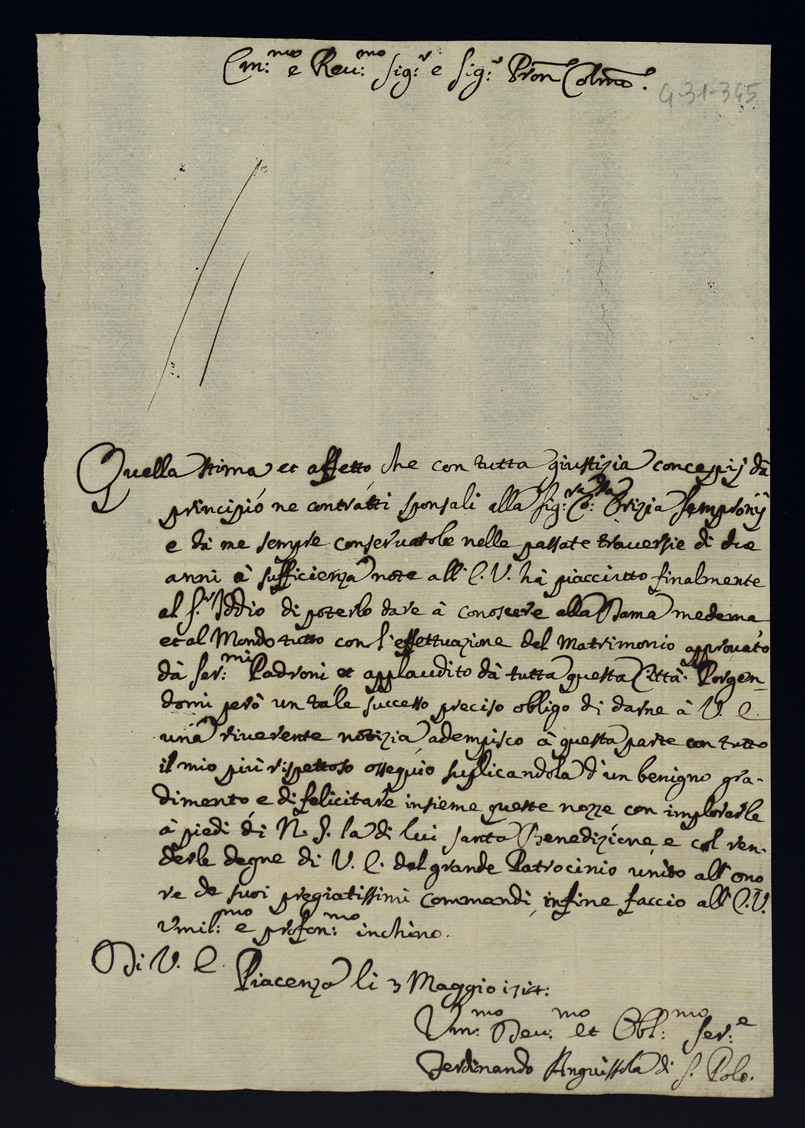 Em:mo e Reu:mo Sig:r e Sig:r Pron Colmo.
G-31-345
Quella stima et affetto, che con tutta giustizia concepij dà
principio ne contratti sponsali alla Sig:ra Co:ssa Orizia Sempronij
e dà me sempre conservatole nelle passate traversie di due
anni à sufficienza note all'E.V. hà piacciuto finalmente
al S.r Iddio di poterlo dare à conoscere alla Dama medema
et al Mondo tutto con l'effettuazione del Matrimonio approuato
dà Ser:mi Padroni et applaudito dà tutta questa Città. Porgen-
domi però un tale successo preciso obligo di darne à V. E.
una riverente notizia, adempisco à questa parte con tutto
il mio più rispettoso ossequio suplicandola d'un benigno gra-
dimento e di felicitare insieme queste nozze con implorarle
à piedi di N. S. la di lui santa Benedizione, e col ren-
derle degne di V. E. del grande Patrocinio unito all'ono
re de suoi pregiatissimi commandi, infine faccio all'E.V.
umil:mo e profon:mo inchino.
Di V. E.
Piacenza li 3 Maggio 1714:
Um:mo Deu:mo et Obl:mo Ser:e
Ferdinando Anguissola di S. Polo.